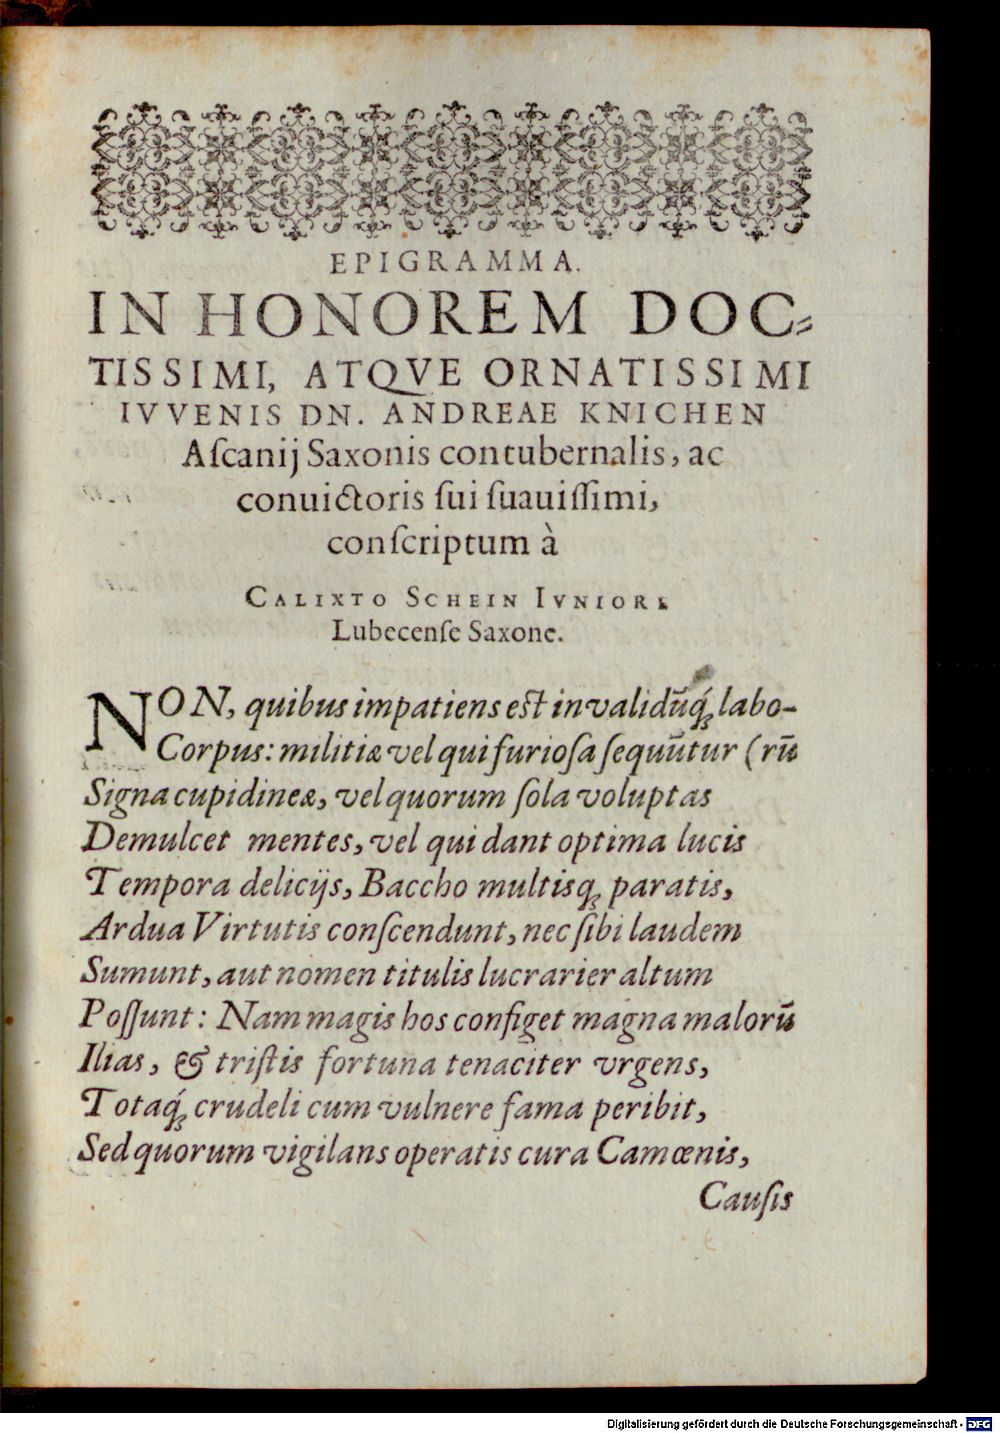 EPIGRAMMA.
IN HONOREM DOC⸗
TISSIMI, ATQVE ORNATISSIMI
IVVENIS DN. ANDREAE KNICHEN
Aſcanij Saxonis contubernalis, ac
conuictoris ſui ſuauiſſimi,
conſcriptum à
CALIXTO SCHEIN IVNIORE
Lubecenſe Saxone.
NON, quibus impatiens est invalidūq́ꝫ labo-
Corpus: militiæ vel qui furioſa ſequūtur (rū
Signa cupidineæ, vel quorum ſola voluptas
Demulcet mentes, vel qui dant optima lucis
Tempora delicijs, Baccho multisqꝫ paratis,
Ardua Virtutis conſcendunt, nec ſibi laudem
Sumunt, aut nomen titulis lucrarier altum
Poſſunt: Nam magis hos configet magna malorū
Ilias, & triſtis fortuna tenaciter vrgens,
Totaq́ꝫ crudeli cum vulnere fama peribit,
Sed quorum vigilans operatis cura Camœnis,
Cauſis
Digitalisierung gefördert durch die Deutsche Forschungsgemeinschaft - DFG